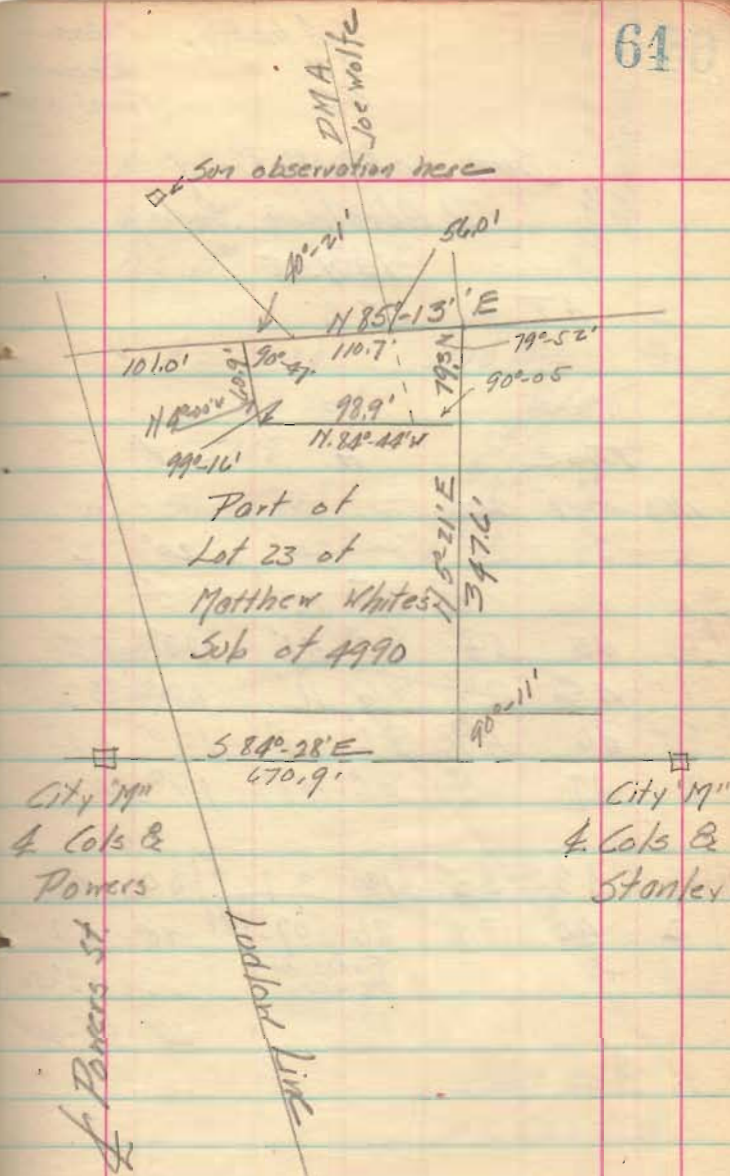 61
DMA
Joe Wolfe
Sun observation here
40°-21'
56.0'
N 85°-13' E
101.0'
60.9'
90°-47'
110.7'
79.3
79°-52'
90°-05
98.9'
N. 84°-44' W
99°-16'
Part of
Lot 23 of
Matthew Whites
Sub of 4990
N 5°-21' E
347.6'
90°-11'
S 84°-28' E
670.9'
City "M"
℄ Cols &
Powers
City "M"
℄ Cols &
Stanley
℄ Powers St
Ludlow Line